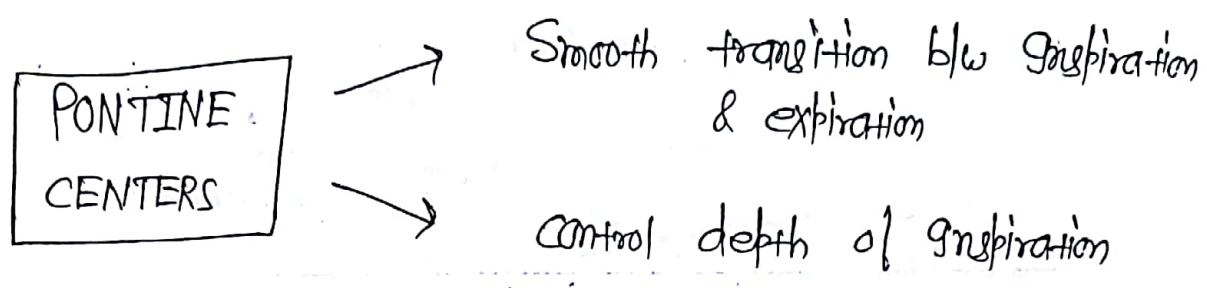 PONTINE
CENTERS
Smooth transition b/w Inspiration
& expiration
control depth of Inspiration